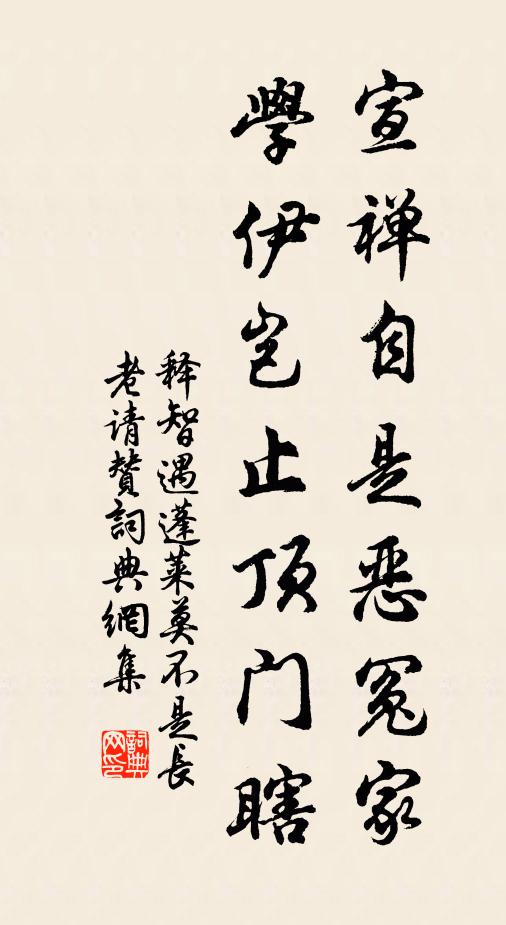 宣禅自是恶冤家
學伊岂止顶门瞎
释智遇蓬莱莫不是長
老请赞詞典網集
詞典
网印